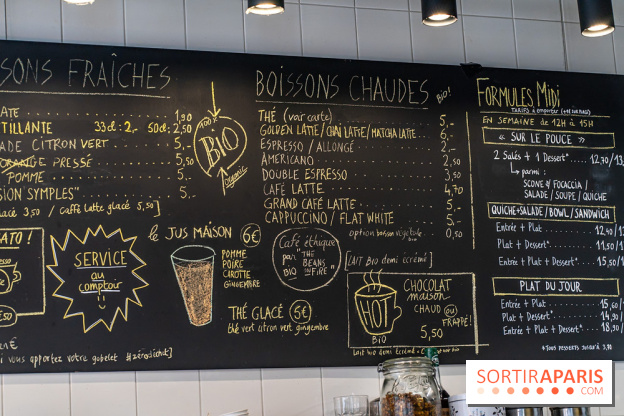 SONS FRAÎCHES
ATE 1,90
TILLANTE 33cl: 2,- 50cl: 2,50
ADE CITRON VERT 5,-
ORANGE PRESSÉ 5,50
POMME 5,-
SION "SYMPLES" 5,-
glacé 3,50 / Caffè latte glacé 5,50]
100% BIO
organic
ATO !
SERVICE
au
comptoir
le JUS MAISON 6€
POMME
POIRE
CAROTTE
GINGEMBRE
THÉ GLACÉ 5€
thé vert citron vert gingembre
si vous apportez votre gobelet #zérodéchet]
BOISSONS CHAUDES
Bio!
THÉ (voir carte) 5,-
GOLDEN LATTE / CHAI LATTE / MATCHA LATTE 6,-
ESPRESSO / ALLONGÉ 2,-
AMERICANO 2,50
DOUBLE ESPRESSO 3,50
CAFÉ LATTE 4,70
GRAND CAFÉ LATTE 5,-
CAPPUCCINO / FLAT WHITE 5,-
option boisson végétale 0,50
bio
Café éthique
par "THE
BEANS
ON FIRE"
BIO
[LAIT BIO demi écrémé]
HOT
BIO
CHOCOLAT
maison
CHAUD ou
FRAPPÉ!
5,50
Lait bio demi écrémé
FORMULES MIDI
TARIFS à emporter
EN SEMAINE de 12H à 15H
« SUR LE POUCE »
2 Salés + 1 Dessert* 12,90/13
parmi:
SCONE / FOCACCIA /
SALADE / SOUPE / QUICHE
QUICHE+SALADE / BOWL / SANDWICH
Entrée + Plat 12,90/1
Plat + Dessert* 11,50/1
Entrée + Plat + Dessert* 15,50/1
PLAT DU JOUR
Entrée + Plat 15,60/1
Plat + Dessert* 14,90/1
Entrée + Plat + Dessert* 18,90/
*TOUS DESSERTS JUSQU'À 3,90
SORTIRAPARIS
.COM